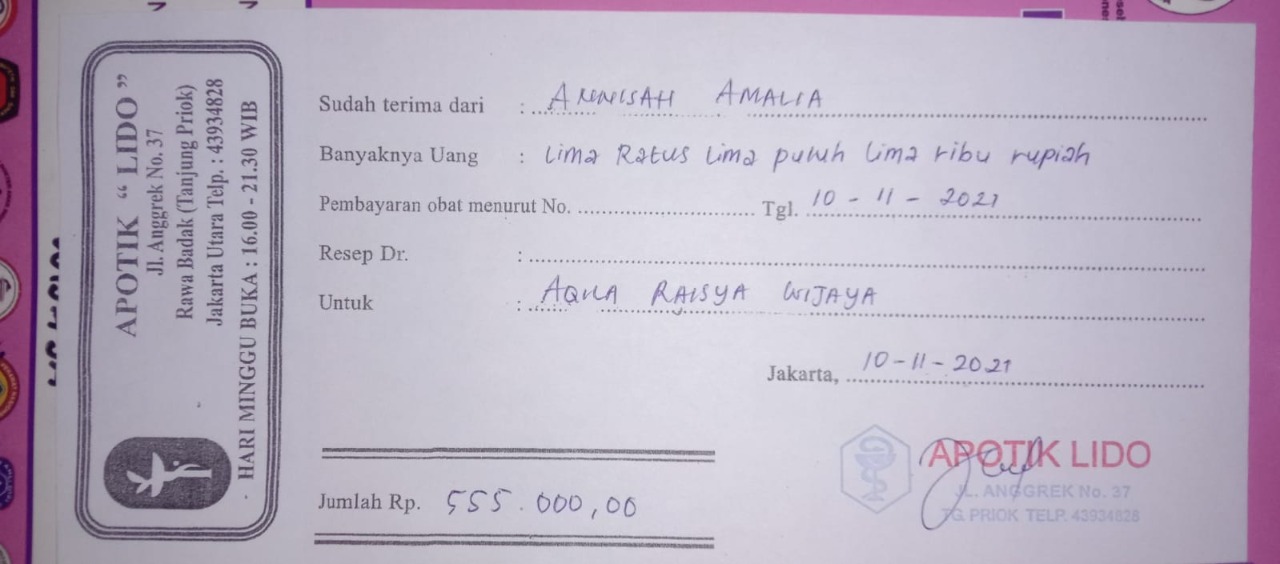 APOTIK “ LIDO ”
Jl. Anggrek No. 37
Rawa Badak (Tanjung Priok)
Jakarta Utara Telp. : 43934828
HARI MINGGU BUKA : 16.00 - 21.30 WIB
Sudah terima dari : ANNISAH AMALIA
Banyaknya Uang : Lima Ratus Lima puluh Lima ribu rupiah
Pembayaran obat menurut No. Tgl. 10 - 11 - 2021
Resep Dr. :
Untuk : AQILA RAISYA WIJAYA
Jakarta, 10-11-2021
Jumlah Rp. 555.000,00
APOTIK LIDO
JL. ANGGREK No. 37
TG. PRIOK TELP. 43934828